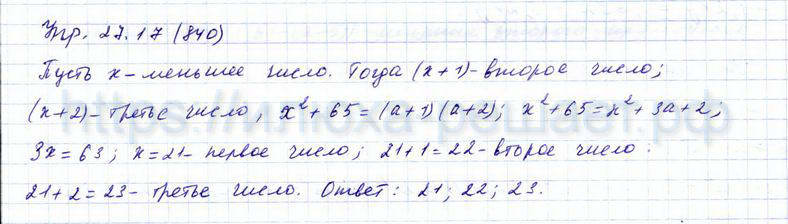 Упр. 27.17 (840)
Пусть x - меньшее число. Тогда (x+1) - второе число;
(x+2) - третье число; x² + 65 = (a+1)(a+2); x² + 65 = x² + 3a + 2;
3x = 63; x = 21 - первое число; 21+1 = 22 - второе число.
21+2 = 23 - третье число. Ответ: 21; 22; 23.